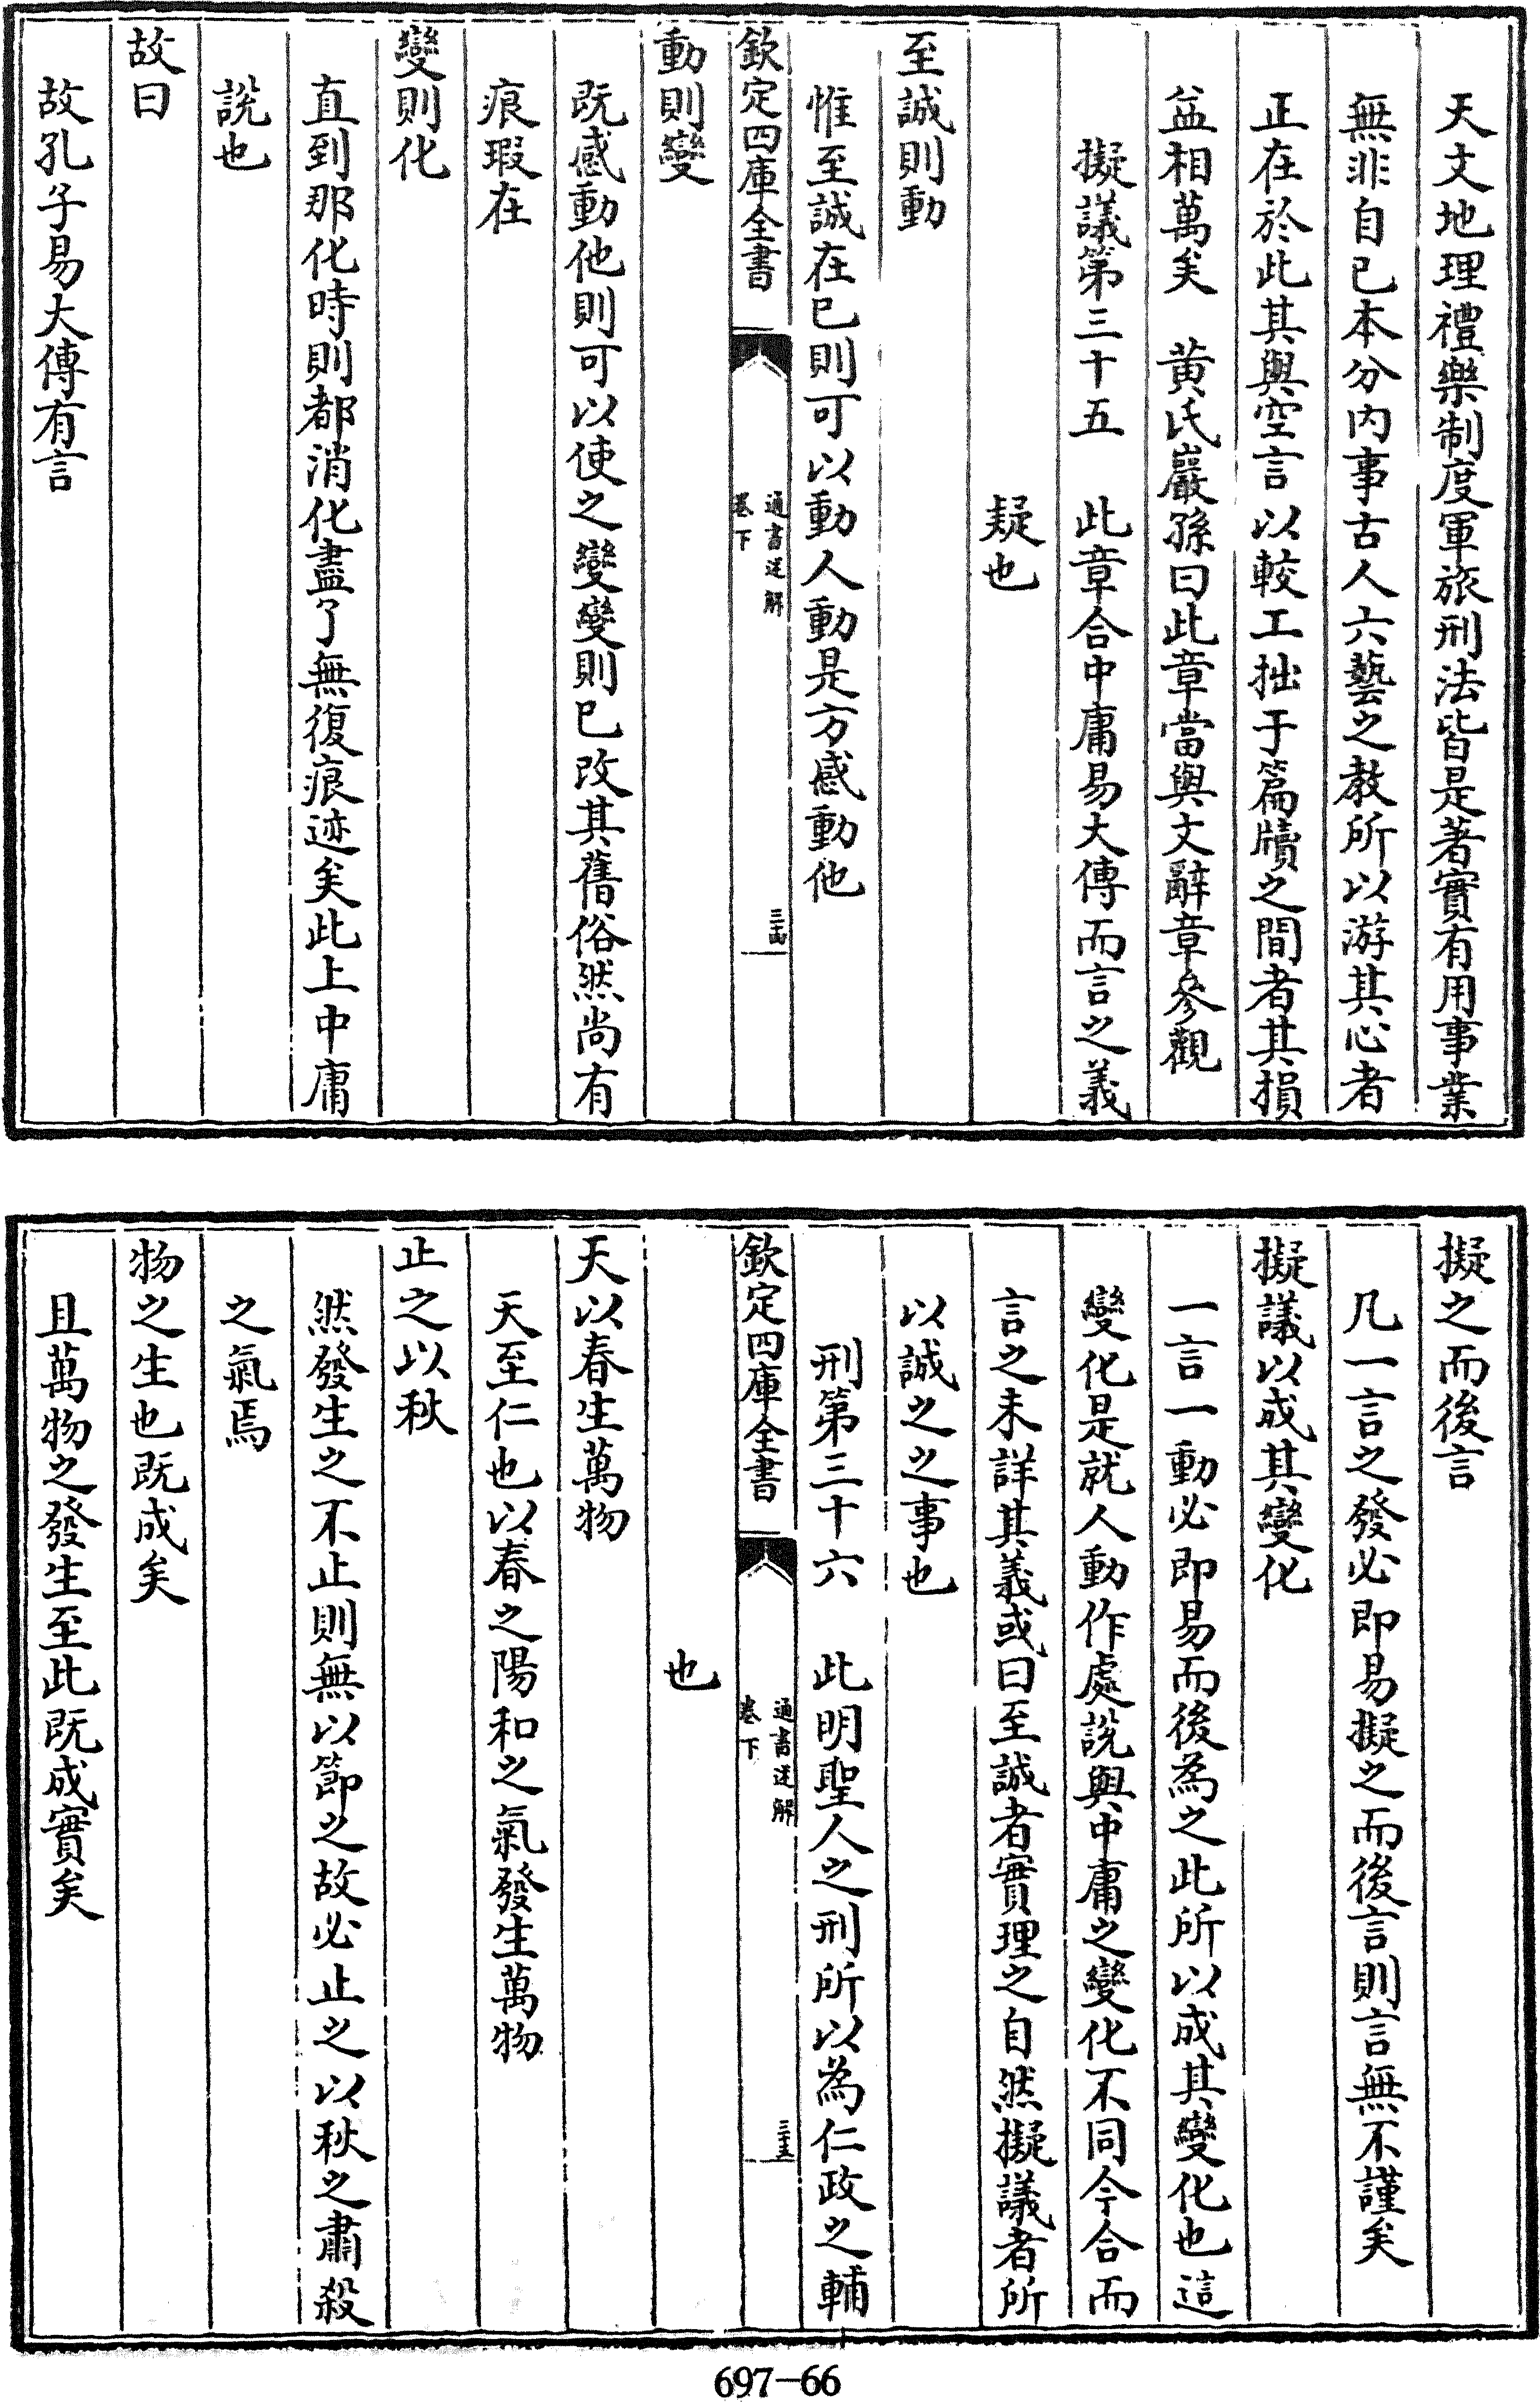 天文地理禮樂制度軍旅刑法皆是著實有用事業
無非自已本分内事古人六藝之教所以游其心者
正在於此其與空言以較工拙于篇牘之間者其損
益相萬矣　黄氏巖孫曰此章當與文辭章參觀
擬議第三十五　此章合中庸易大傳而言之義
疑也
至誠則動
惟至誠在已則可以動人動是方感動他
欽定四庫全書
通書述解
卷下
三十四
動則變
既感動他則可以使之變變則已改其舊俗然尚有
痕瑕在
變則化
直到那化時則都消化盡了無復痕迹矣此上中庸
說也
故曰
故孔子易大傳有言
擬之而後言
凡一言之發必即易擬之而後言則言無不謹矣
擬議以成其變化
一言一動必即易而後為之此所以成其變化也這
變化是就人動作處說與中庸之變化不同今合而
言之未詳其義或曰至誠者實理之自然擬議者所
以誠之之事也
刑第三十六　此明聖人之刑所以為仁政之輔
欽定四庫全書
通書述解
卷下
三十五
也
天以春生萬物
天至仁也以春之陽和之氣發生萬物
止之以秋
然發生之不止則無以節之故必止之以秋之肅殺
之氣焉
物之生也既成矣
且萬物之發生至此既成實矣
697-66